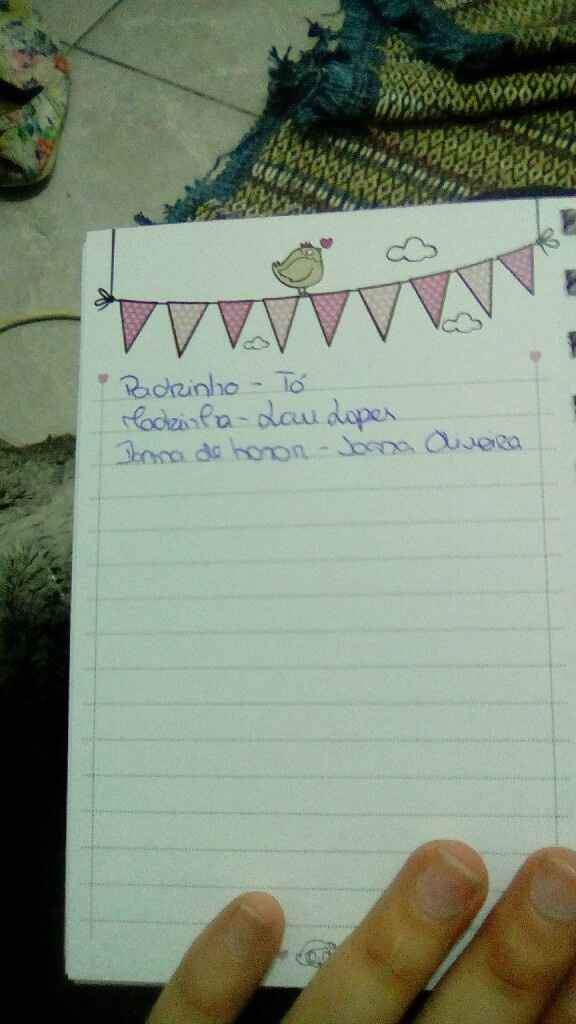 Padrinho - Tó
Madrinha - Lau Lopes
Dama de honor - Joana Oliveira